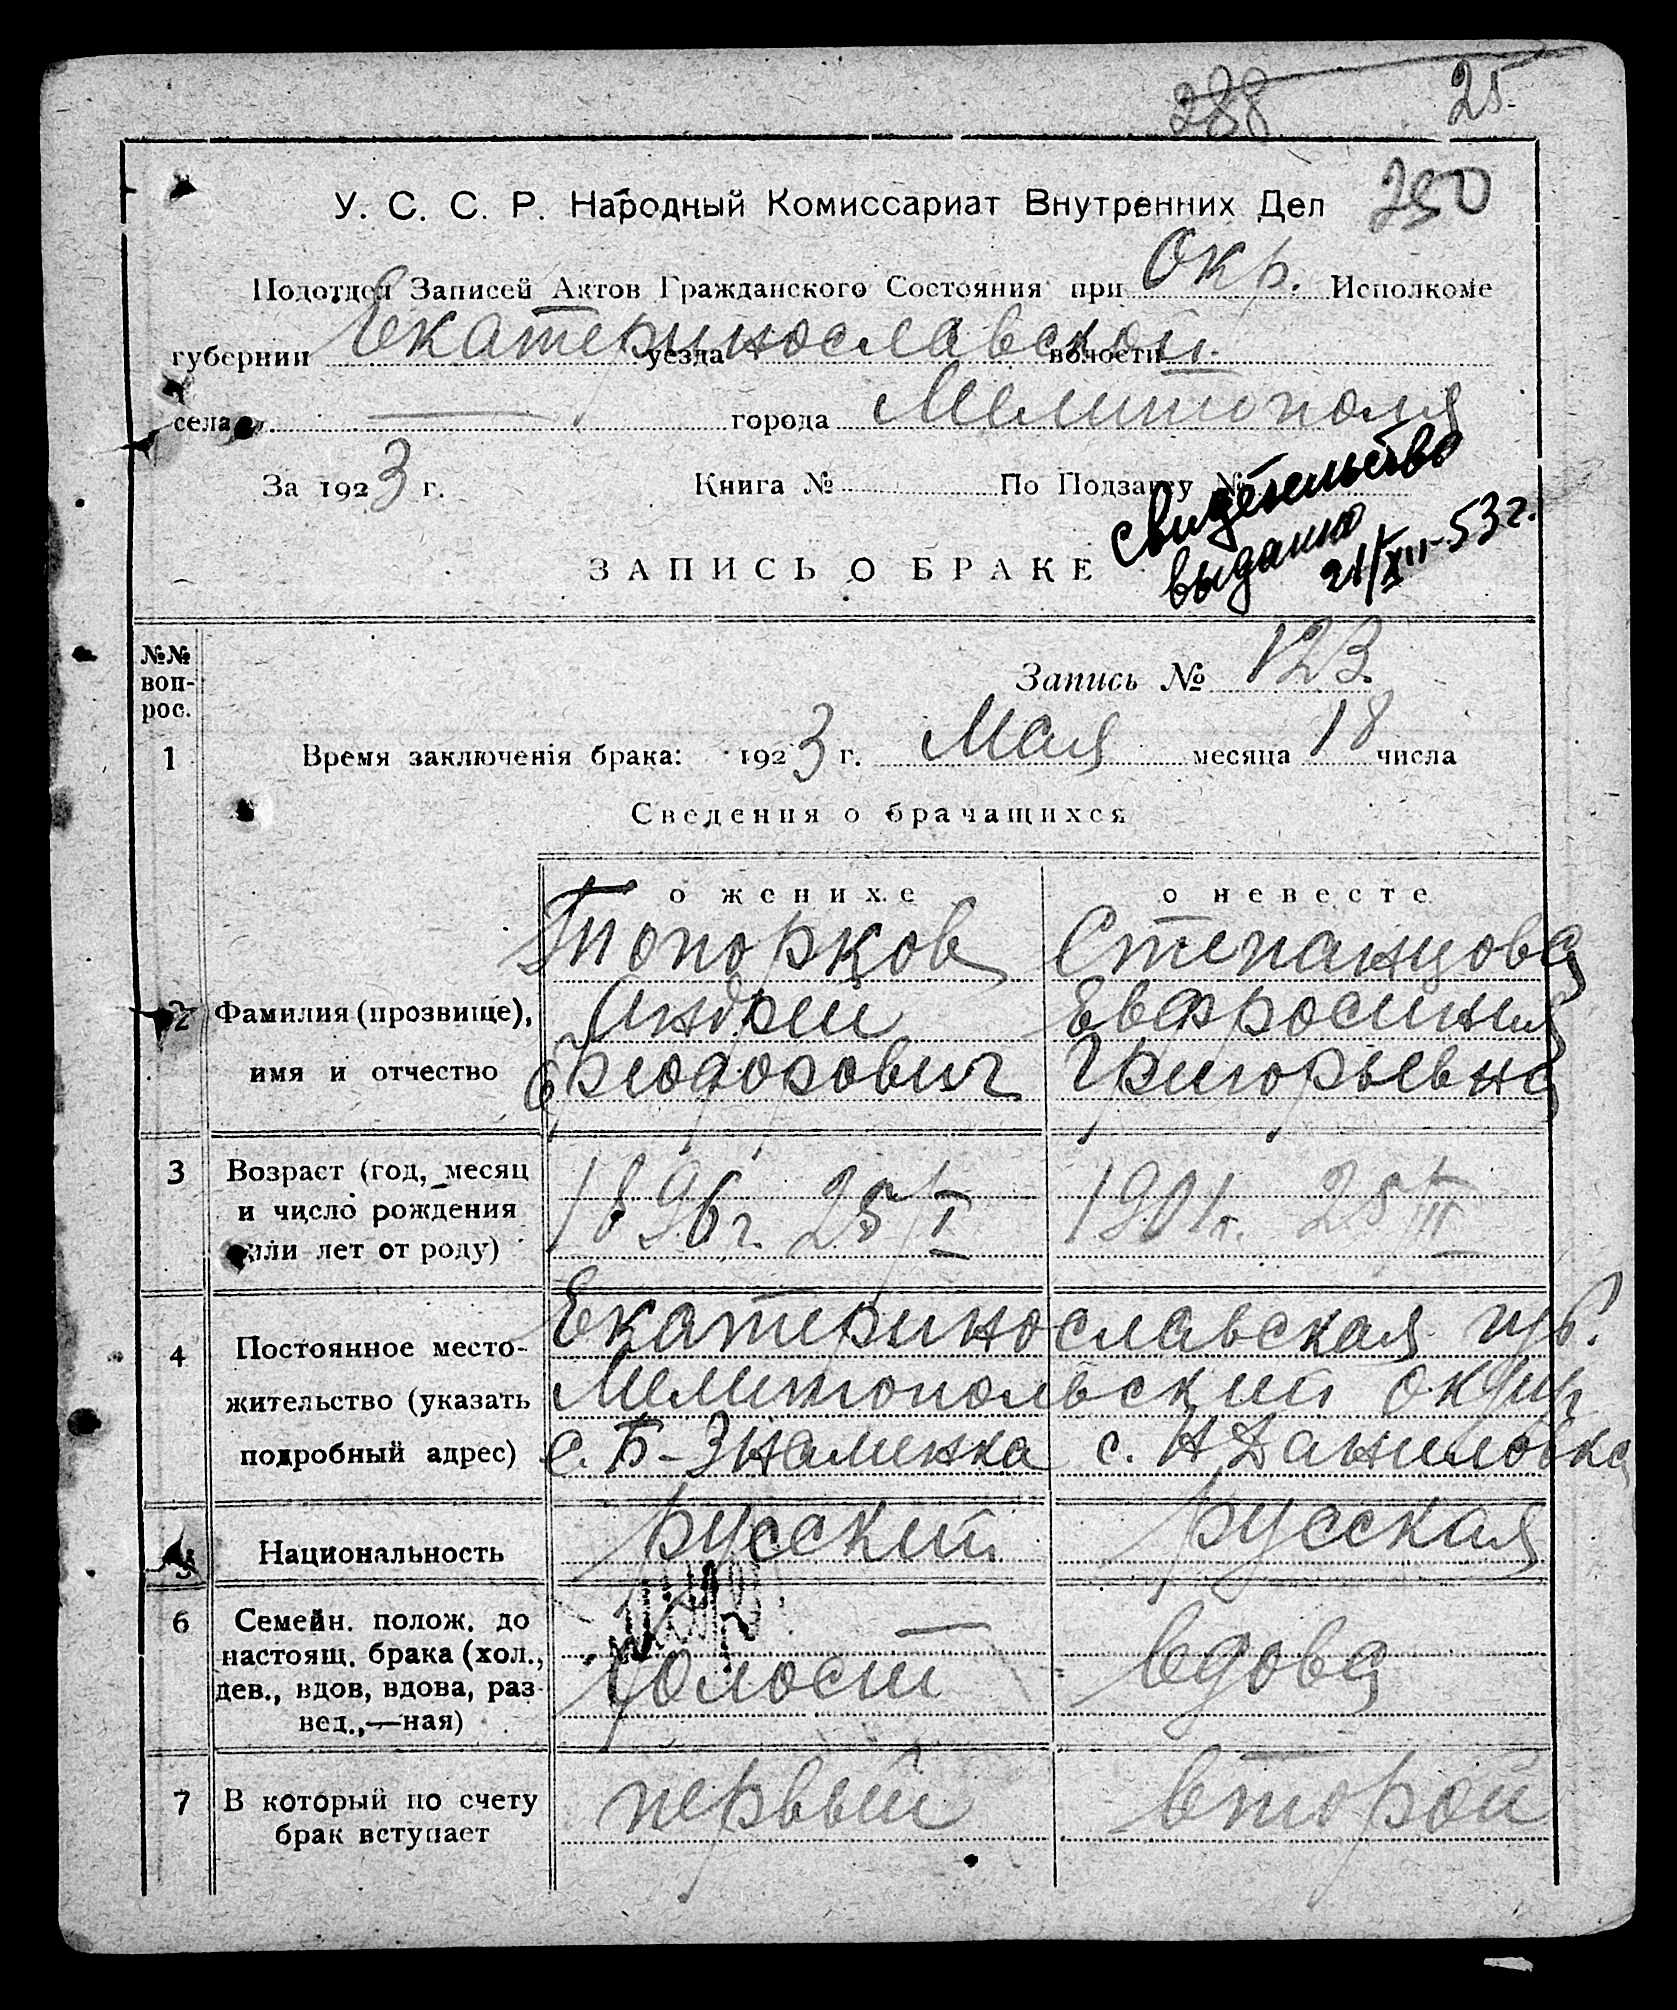 288 25
250
У. С. С. Р. Народный Комиссариат Внутренних Дел
Подотдел Записей Актов Гражданского Состояния при Окр. Исполкоме
губернии Екатеринославской уезда волости
села — города Мелитополя
За 1923 г. Книга № По Подзагсу №
свидетельство
выдано
21/XII-53 г.
ЗАПИСЬ О БРАКЕ
№№ вопрос.
Запись № 123
1 Время заключенія брака: 1923 г. Мая месяца 18 числа
Сведения о брачащихся
о женихе о невесте
Топорков Степанцова
2 Фамилия (прозвище), Андрей Евфросиния
имя и отчество Феодорович Григорьевна
3 Возраст (год, месяц
и число рождения 1896 г. 25/I 1901 г. 25/III
или лет от роду)
Екатеринославская губ.
4 Постоянное место-
жительство (указать Мелитопольский округ
подробный адрес) с. Б-Знаменка с. Н Даниловка
5 Национальность русский русская
6 Семейн. полож. до
настоящ. брака (хол.,
дев., вдов, вдова, раз- холост вдова
вед.,—ная)
7 В который по счету первый второй
брак вступает